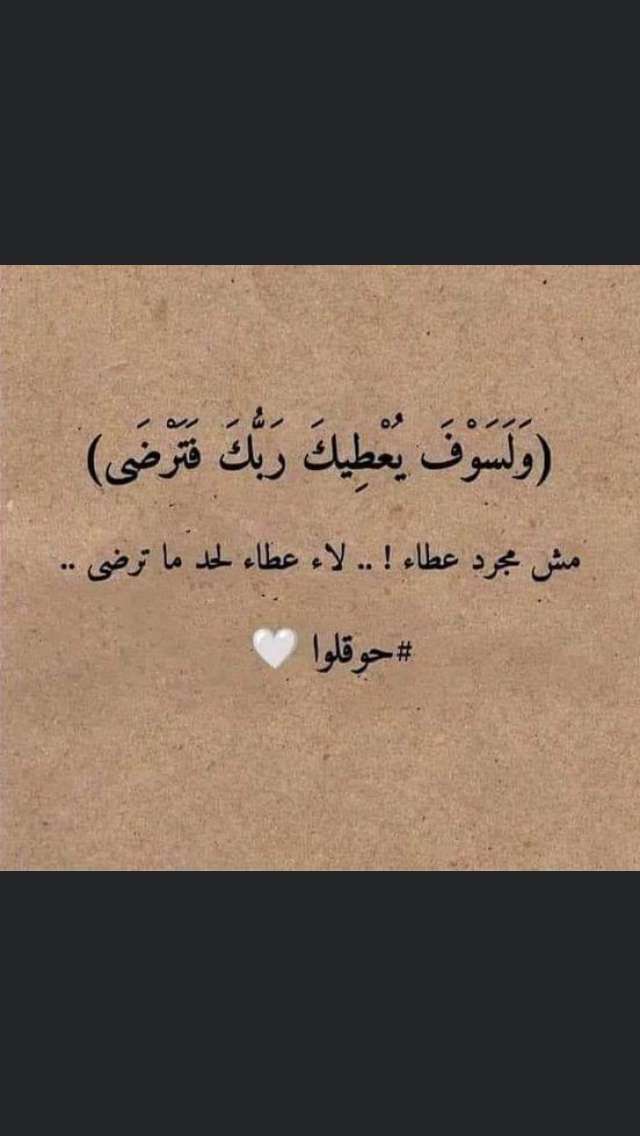 (وَلَسَوْفَ يُعْطِيكَ رَبُّكَ فَتَرْضَى)
مش مجرد عطاء ! .. لاء عطاء لحد ما ترضى ..
#حوقلوا 🤍